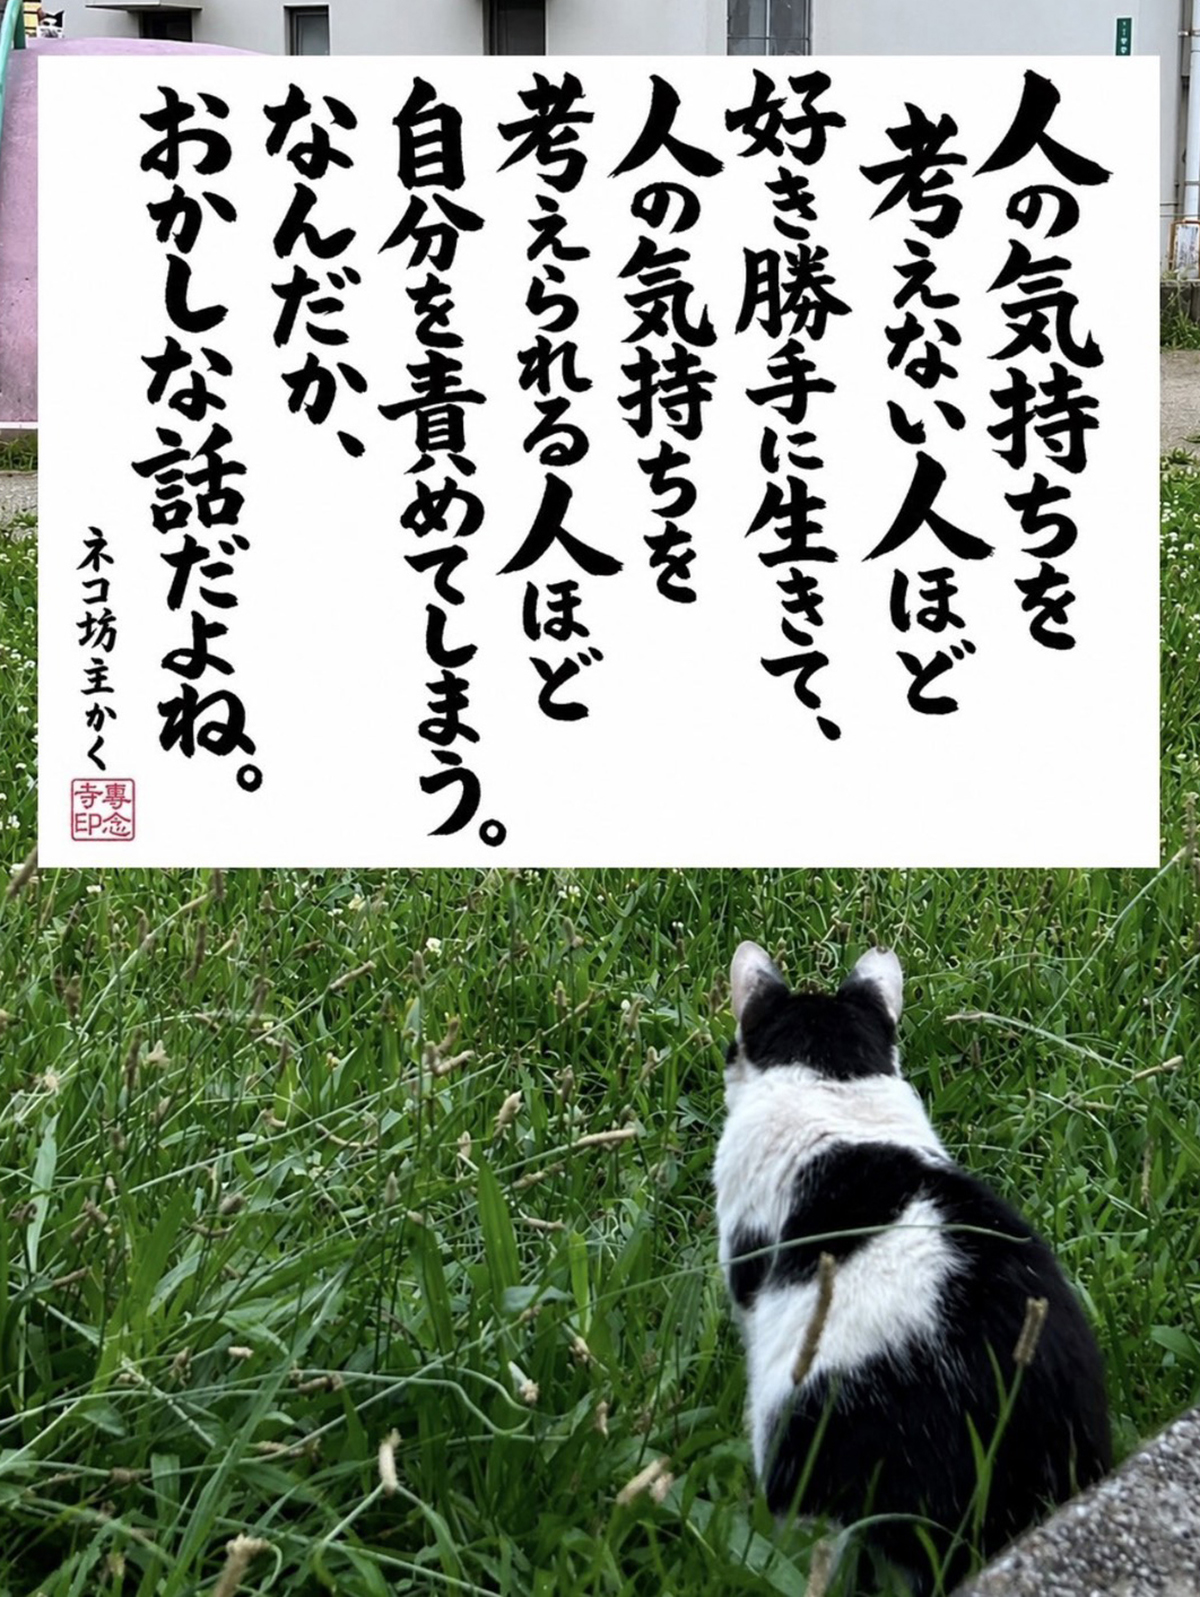 人の気持ちを
考えない人ほど
好き勝手に生きて、
人の気持ちを
考えられる人ほど
自分を責めてしまう。
なんだか、
おかしな話だよね。
ネコ坊主かく
專念
寺印